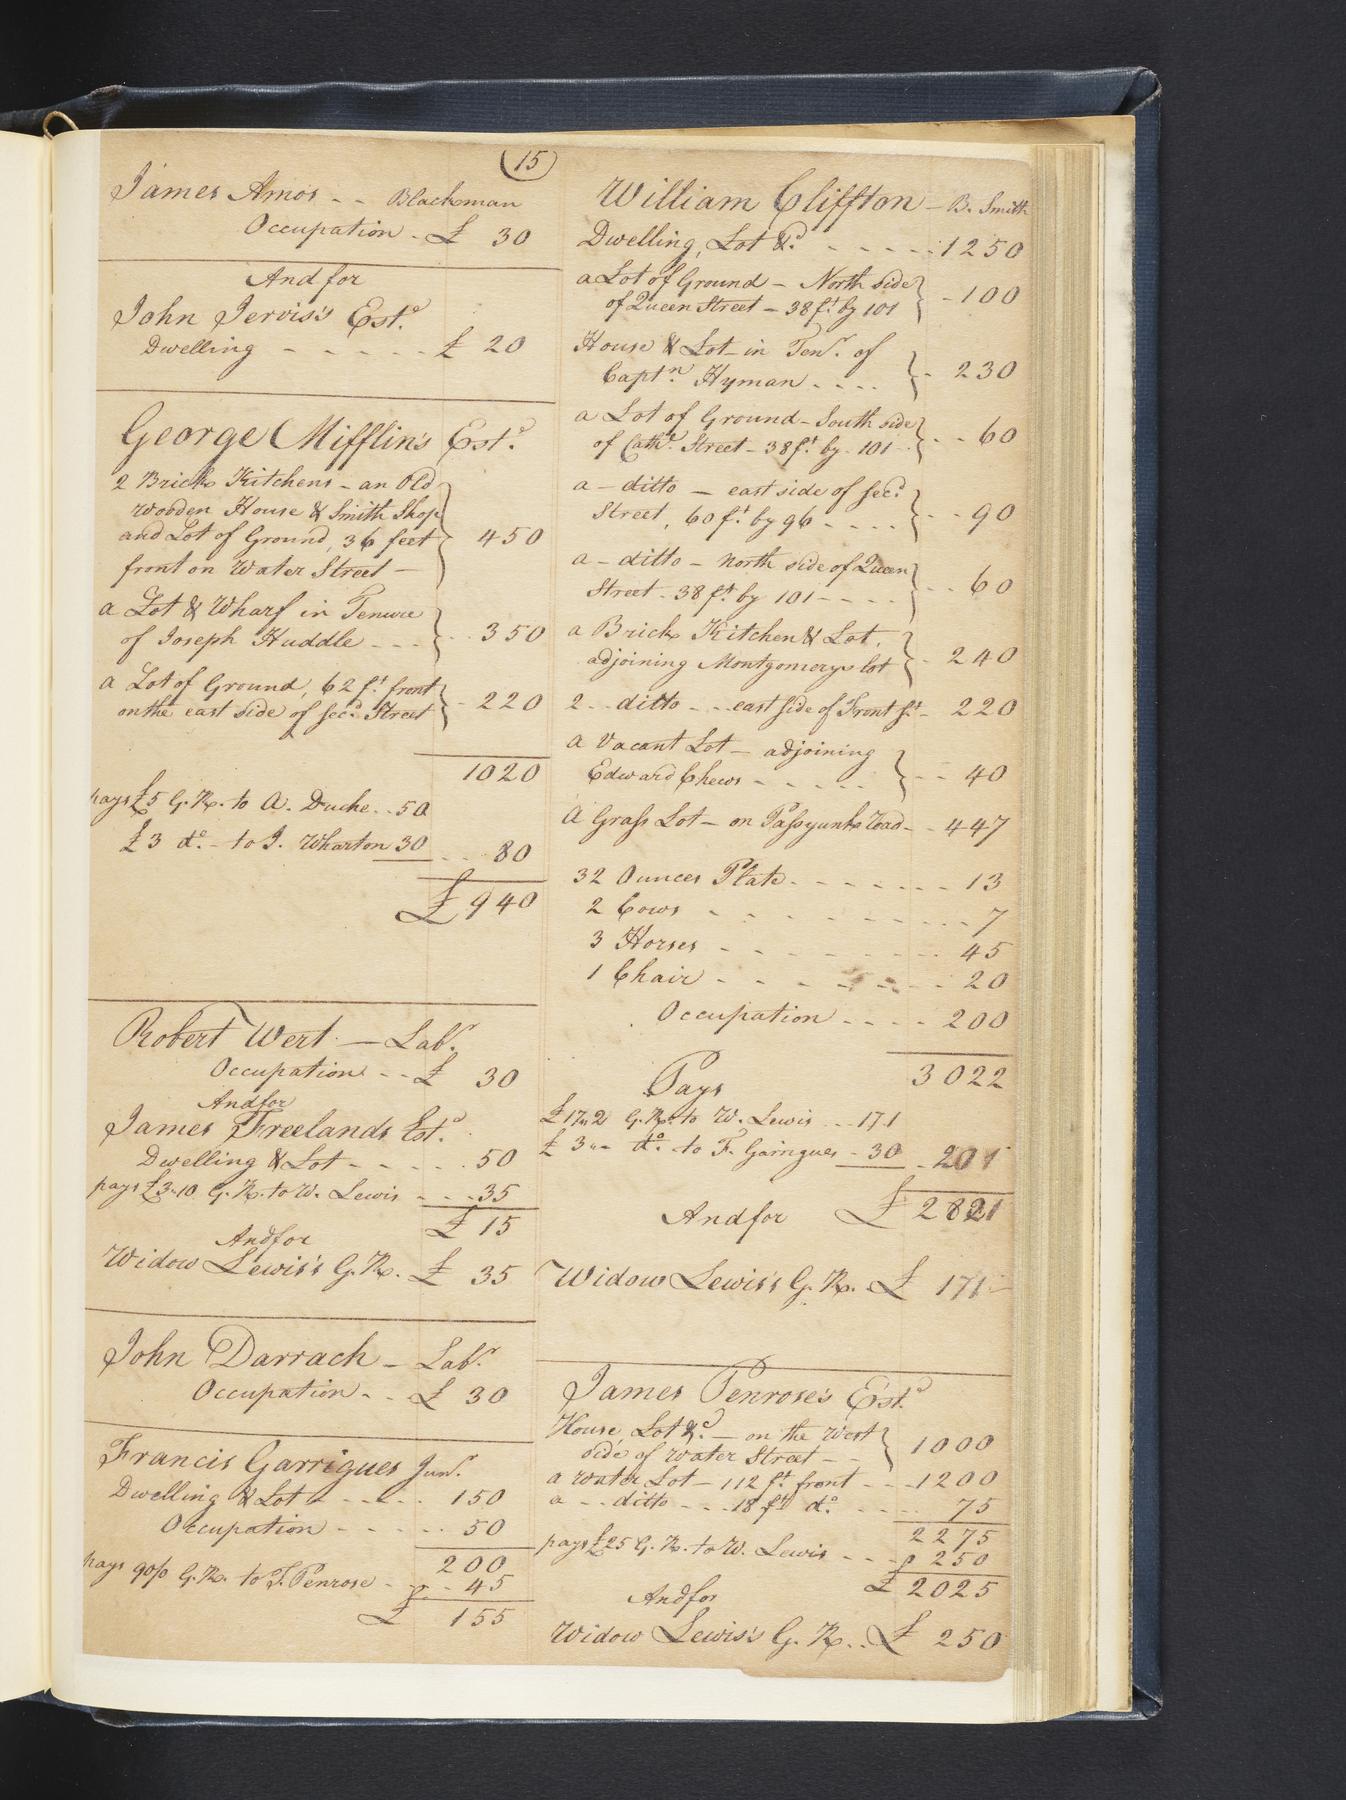 15
James Amos - - Blackman
Occupation - £ 30
And for
John Jervis's Est.e
Dwelling - - - - - £ 20
George Mifflin's Est.e
2 Brick Kitchens - an Old
Wooden House & Smith Shop
and Lot of Ground, 36 feet
front on Water Street - 450
a Lot & Wharf in Tenure
of Joseph Huddle - - - 350
a Lot of Ground, 62 f.t front
on the east side of Sec.d Street - 220
1020
pays £5 G.R. to A. Duche - - 50
£3 d.o - to J. Wharton 30 - - 80
£ 940
Robert Wert - Lab.r
Occupation - - £ 30
And for
James Freelands Est.e
Dwelling & Lot - - - - 50
pays £3..10 G.R. to W. Lewis - - - 35
£ 15
And for
Widow Lewis's G.R. £ 35
John Darrach - Lab.r
Occupation - - £ 30
Francis Garrigues Jun.r
Dwelling & Lot - - - - 150
Occupation - - - - - 50
200
pays 90/0 G.R. to J. Penrose - - 45
£ 155
William Cliffton - B. Smith
Dwelling, Lot &c. - - - - - 1250
a Lot of Ground - North side
of Queen Street - 38 f.t by 101 - 100
House & Lot - in Ten.r of
Capt.n Hyman - - - - 230
a Lot of Ground - South side
of Cath.e Street - 38 f.t by 101 - - 60
a - ditto - east side of Sec.d
Street, 60 f.t by 96 - - - - - 90
a - ditto - North side of Queen
Street - 38 f.t by 101 - - - - - 60
a Brick Kitchen & Lot,
adjoining Montgomerys lot - 240
2 - - ditto - - - east side of Front S.t - 220
a Vacant Lot - adjoining
Edward Chews - - - - - 40
A Grass Lot - on Passyunk Road - - 447
32 Ounces Plate - - - - - - 13
2 Cows - - - - - - - 7
3 Horses - - - - - - 45
1 Chair - - - - - - 20
Occupation - - - - 200
3022
Pays
£17..2 G.R. to W. Lewis - - - 171
£ 3 .. - d.o to F. Garrigues - 30 - 201
£ 2821
And for
Widow Lewis's G.R. £ 171
James Penrose's Est.e
House, Lot &c. - on the West
side of Water Street - - 1000
a Water Lot - 112 f.t front - - - 1200
a - - ditto - - - 18 f.t d.o - - - 75
2275
pays £25 G.R. to W. Lewis - - - 250
£ 2025
And for
Widow Lewis's G.R. - - £ 250